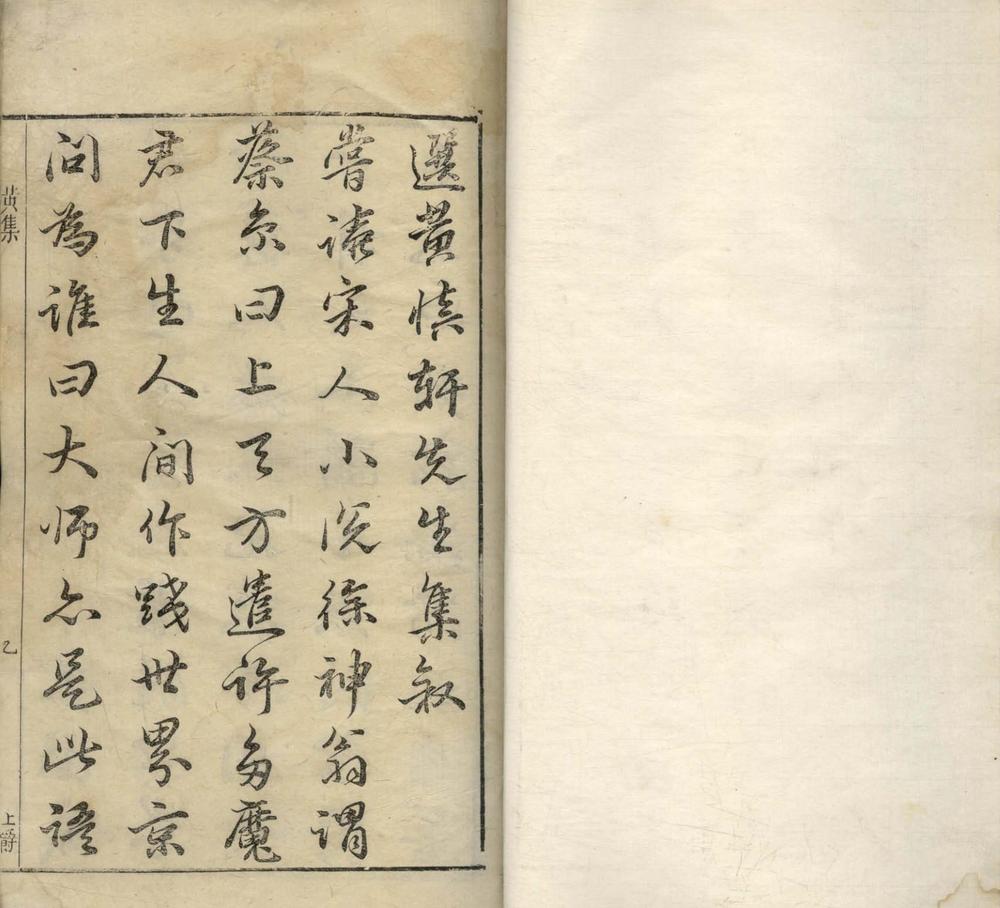 選黄慎軒先生集叙
嘗讀宋人小説徐神翁謂
蔡京曰上天方遣許多魔
君下生人間作踐世界京
問為誰曰太師亦是此語
黄集
乙
上爵